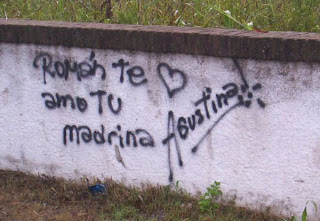 Román te ♡
amo tu
madrina Agustina!